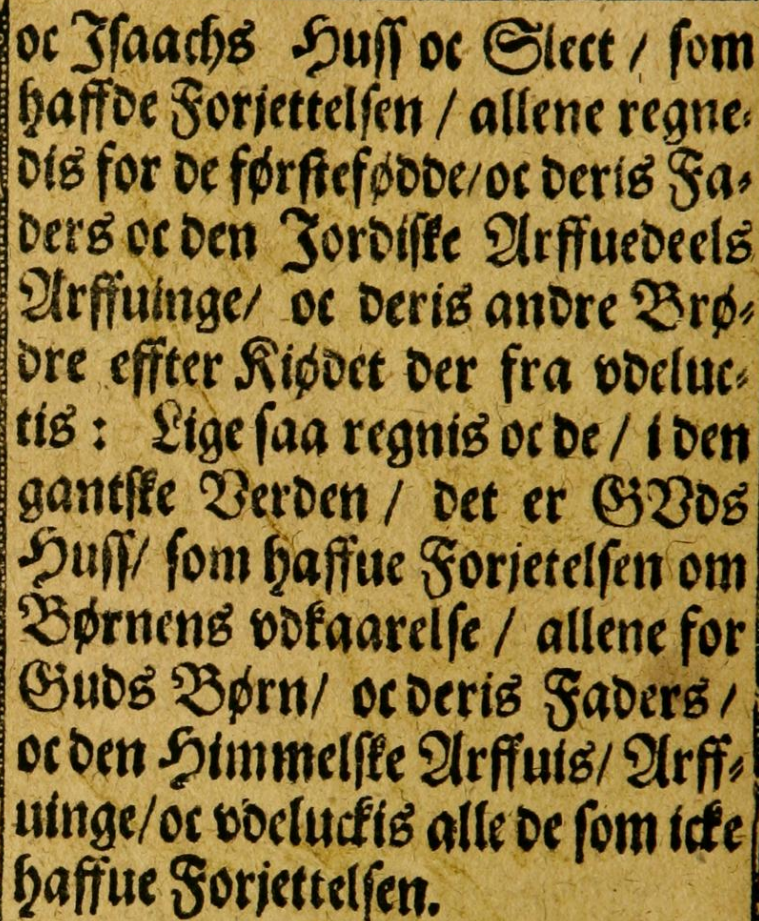 oc Isaachs Huss oc Slect / som
haffde Forjettelsen / allene regne-
dis for de førstefødde/oc deris Fa-
ders oc den Jordiske Arffuedeels
Arffuinge/ oc deris andre Brø-
dre effter Kiødet der fra vdeluc-
tis : Lige saa regnis oc de / i den
gantske Verden / det er GVds
Huss/ som haffue Forjetelsen om
Børnens vdkaarelse / allene for
Guds Børn/ oc deris Faders /
oc den Himmelske Arffuis/ Arff-
uinge/oc vdeluckis alle de som icke
haffue Forjettelsen.